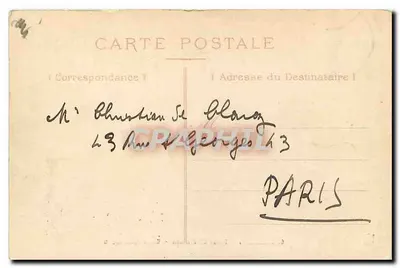 CARTE POSTALE
(Correspondance) (Adresse du Destinataire)
Mr Christian de
43 Rue St Georges 43
PARIS